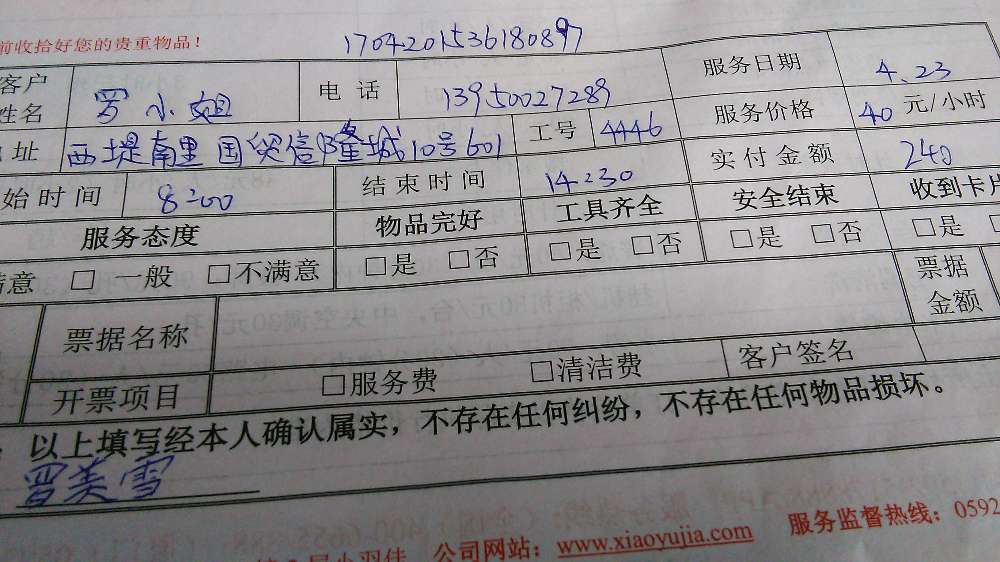 前收拾好您的贵重物品！
1704201536180897
客户姓名 罗小姐 电话 13950027289 服务日期 4.23
址 西堤南里国贸信隆城10号601 工号 4446 服务价格 40元/小时
始时间 8:00 结束时间 14:30 实付金额 240
服务态度 物品完好 工具齐全 安全结束 收到卡片
满意 □ 一般 □不满意 □是 □否 □是 □否 □是 □否 □是
票据名称 票据金额
开票项目 □服务费 □清洁费 客户签名
以上填写经本人确认属实，不存在任何纠纷，不存在任何物品损坏。
小羽佳 公司网站：www.xiaoyujia.com 服务监督热线：0592